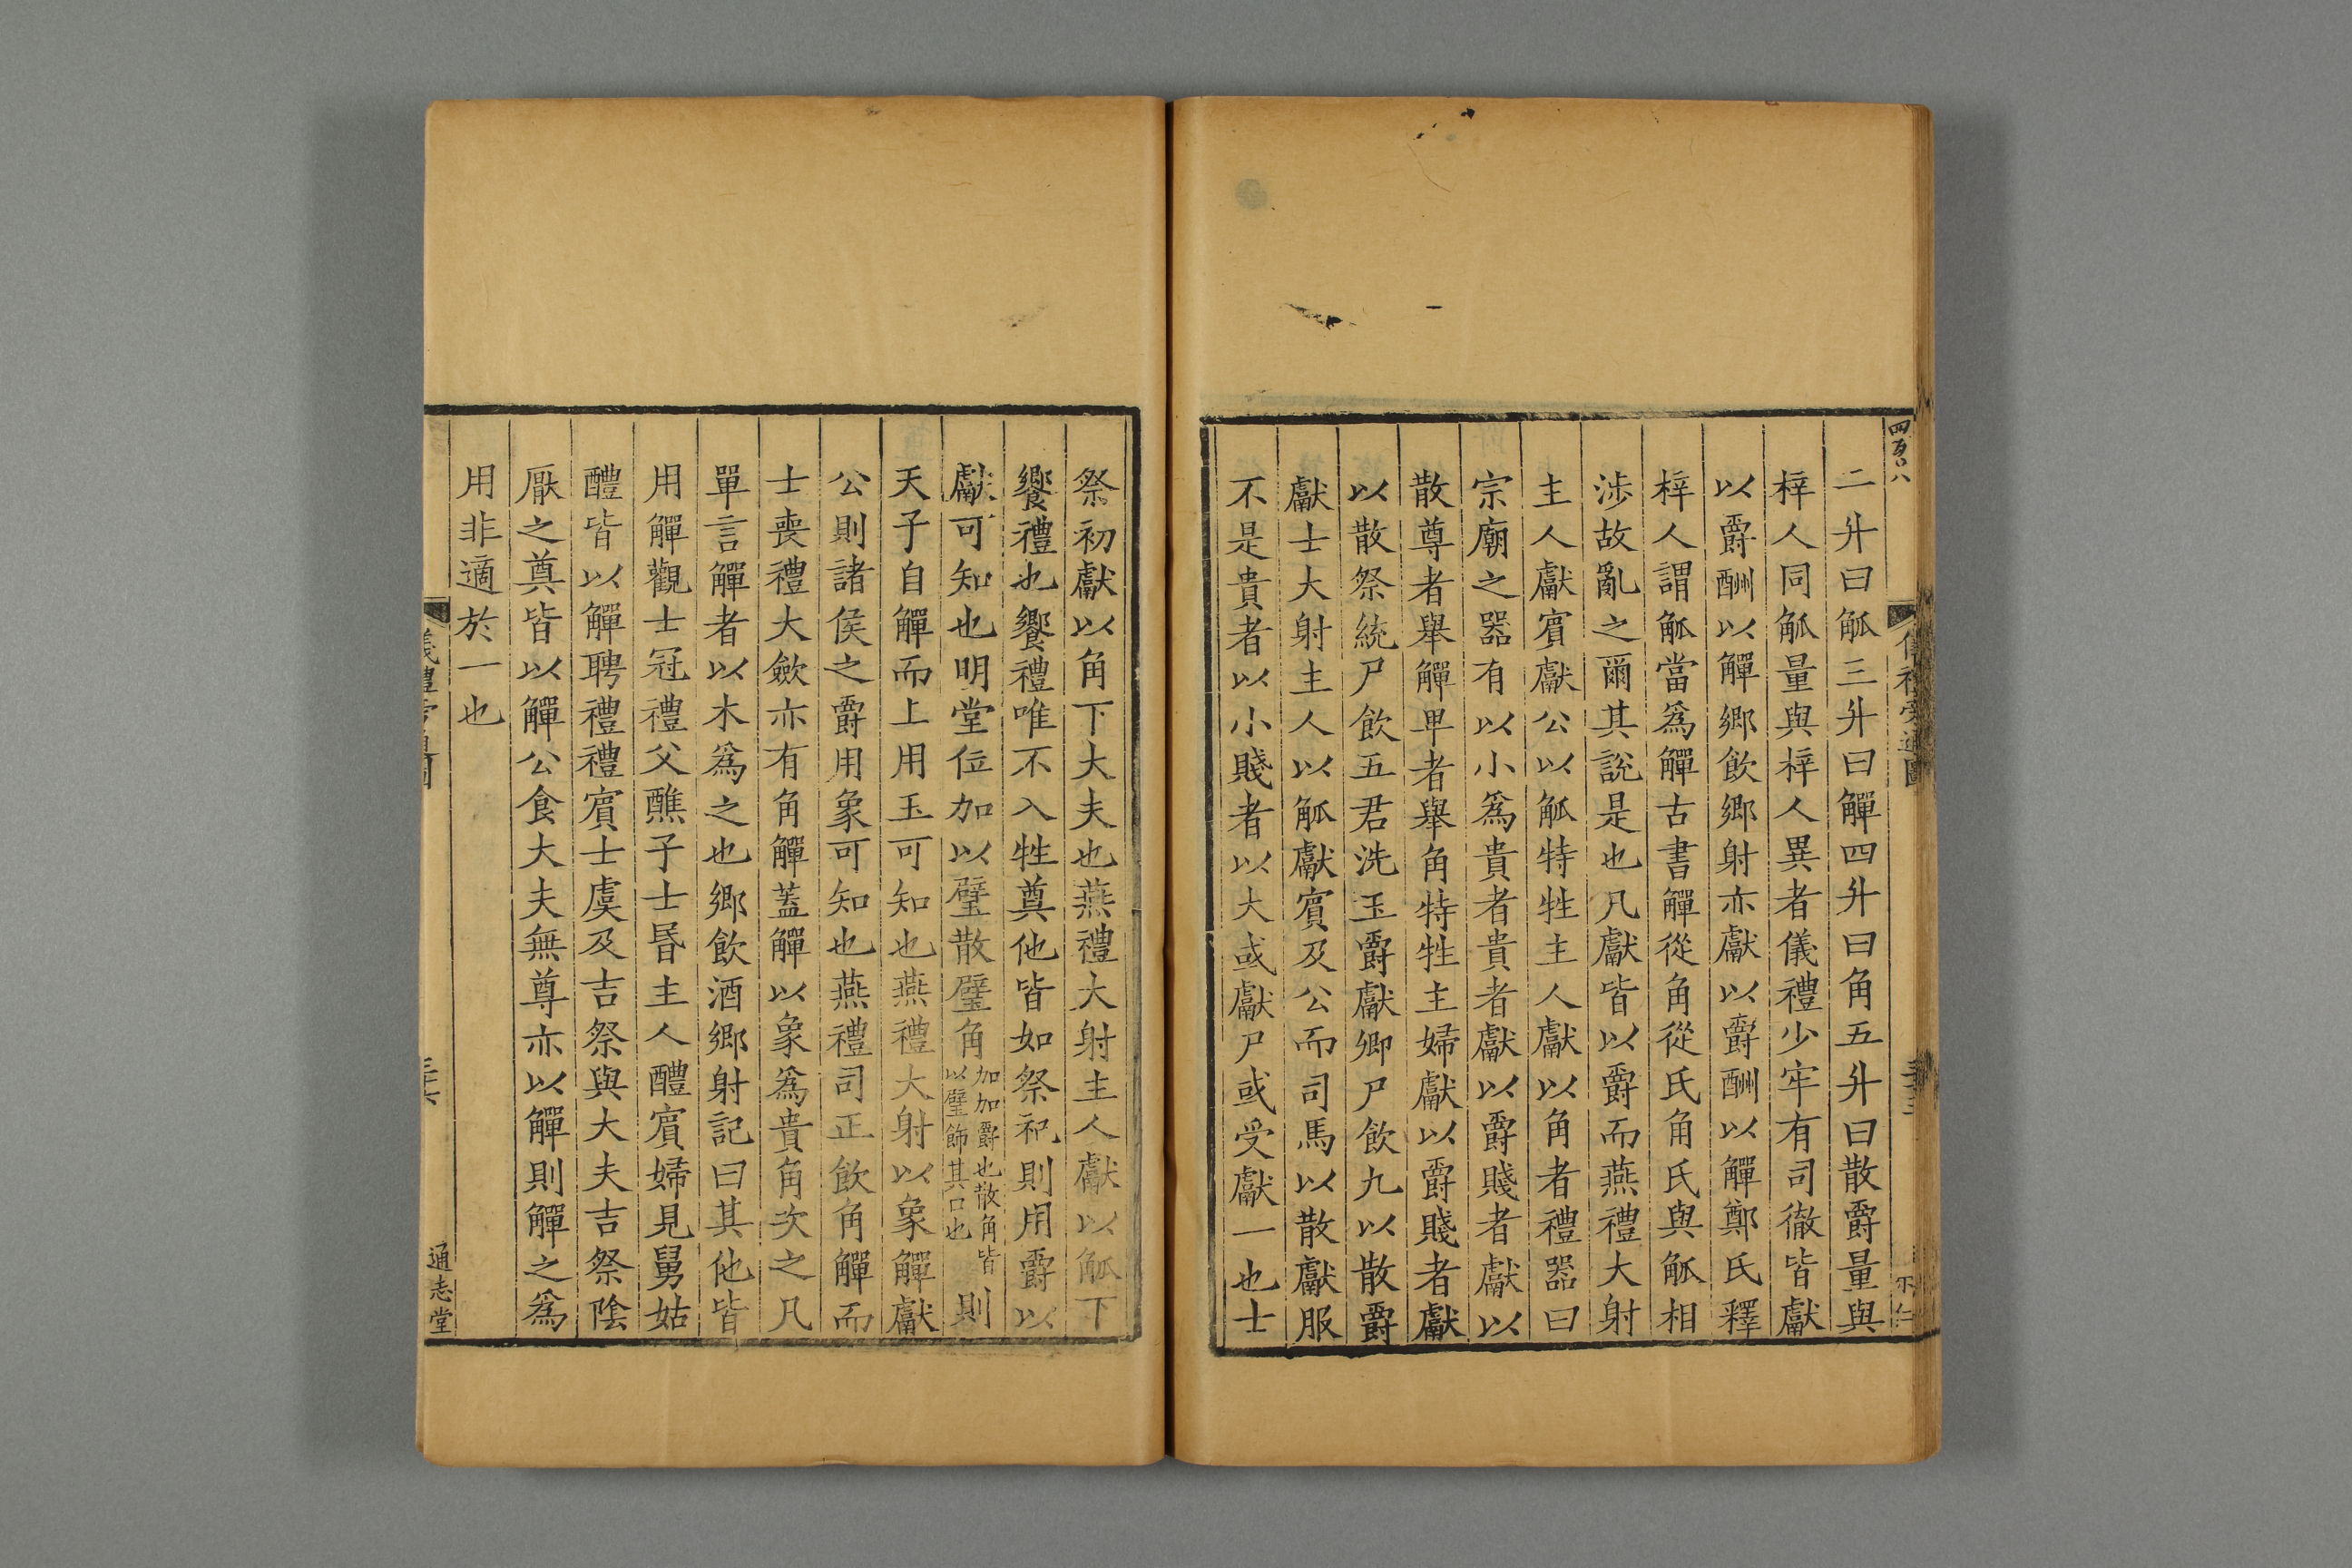 四百八
二升曰觚三升曰觶四升曰角五升曰散爵量與
梓人同觚量與梓人異者儀禮少牢有司徹皆獻
以爵酬以觶鄉飲鄉射亦獻以爵酬以觶鄭氏釋
梓人謂觚當爲觶古書觶從角從氏角氏與觚相
涉故亂之爾其說是也凡獻皆以爵而燕禮大射
主人獻賓獻公以觚特牲主人獻以角者禮器曰
宗廟之器有以小爲貴者貴者獻以爵賤者獻以
散尊者舉觶卑者舉角特牲主婦獻以爵賤者獻
以散祭統尸飲五君洗玉爵獻卿尸飲九以散爵
獻士大射主人以觚獻賓及公而司馬以散獻服
不是貴者以小賤者以大或獻尸或受獻一也士
祭初獻以角下大夫也燕禮大射主人獻以觚下
饗禮也饗禮唯不入牲奠他皆如祭祀則用爵以
獻可知也明堂位加以璧散璧角加加爵也散角皆以璧飾其口也則
天子自觶而上用玉可知也燕禮大射以象觶獻
公則諸侯之爵用象可知也燕禮司正飲角觶而
士喪禮大斂亦有角觶蓋觶以象爲貴角次之凡
單言觶者以木爲之也鄉飲酒鄉射記曰其他皆
用觶觀士冠禮父醮子士昬主人醴賓婦見舅姑
醴皆以觶聘禮禮賓士虞及吉祭與大夫吉祭陰
厭之奠皆以觶公食大夫無尊亦以觶則觶之爲
用非適於一也
通志堂